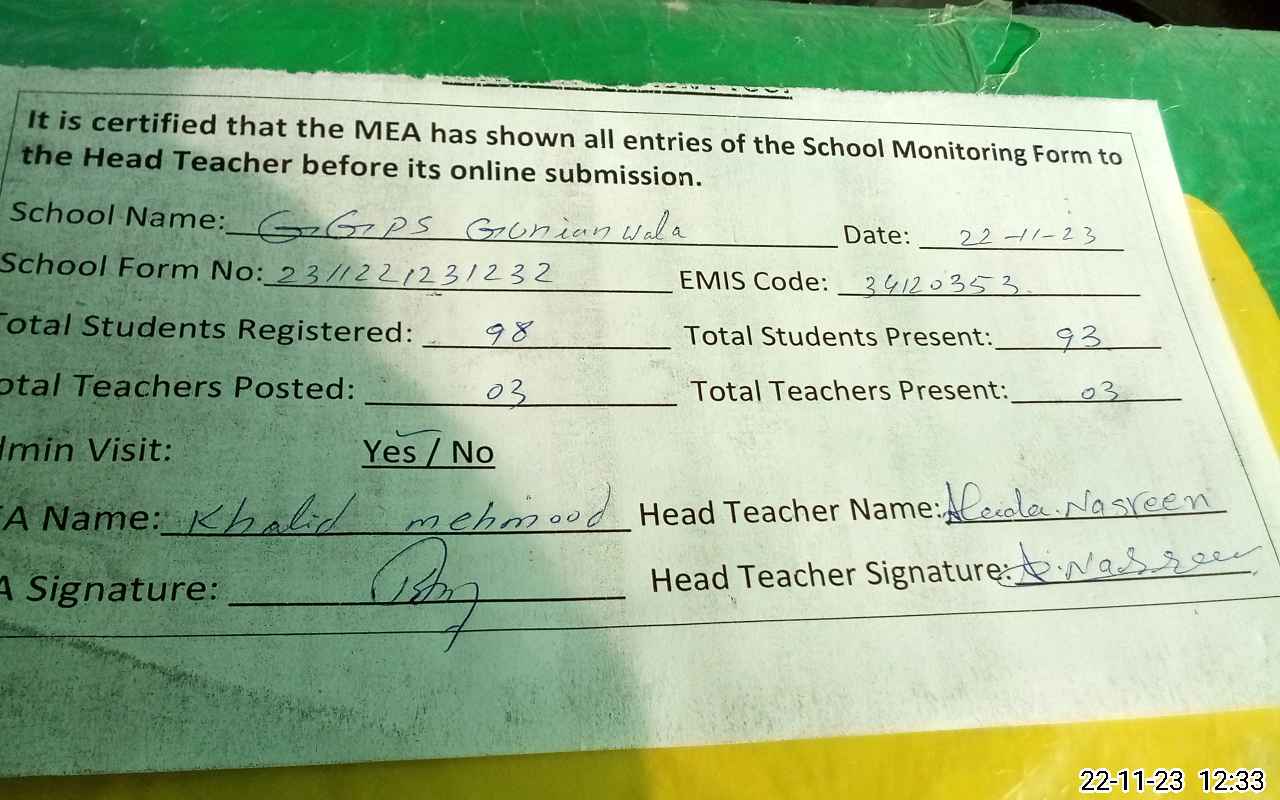 It is certified that the MEA has shown all entries of the School Monitoring Form to
the Head Teacher before its online submission.
School Name: GGPS Gunianwala Date: 22-11-23
School Form No: 2311221231232 EMIS Code: 34120353
Total Students Registered: 98 Total Students Present: 93
otal Teachers Posted: 03 Total Teachers Present: 03
dmin Visit: Yes / No
A Name: Khalid mehmood Head Teacher Name: Nasreen
A Signature: Head Teacher Signature: A. Nasreen
22-11-23 12:33